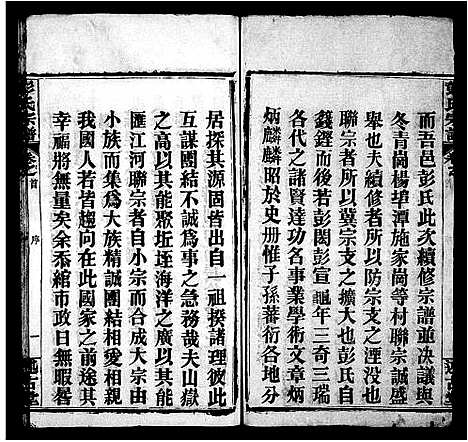 而吾邑彭氏此次續修宗譜並决議與
冬青崗楊埠潭施家崗等村聯宗誠盛
舉也夫修宗譜所以防宗支之湮沒而
聯宗者所以冀宗支之擴大也彭氏自
錢鏗而後若彭閎彭宣龜年三奇三瑞
各代之諸賢達本各爲事業學術文章炳
炳麟麟昭於史册惟子孫蕃衍各地分
居探其源固皆出自一祖揆諸理彼此
互謀團結不誠爲事之急務哉夫山嶽
以其能聚坵垤海洋之廣以其能
匯江河聯宗者自小宗而合成大宗由
小族而集爲大族精誠團結相愛相親
我國人若皆趨向在此國家之前途其
幸福將無量矣余忝綰市政日無暇晷
彭氏宗譜
卷之首
序
一
述古堂